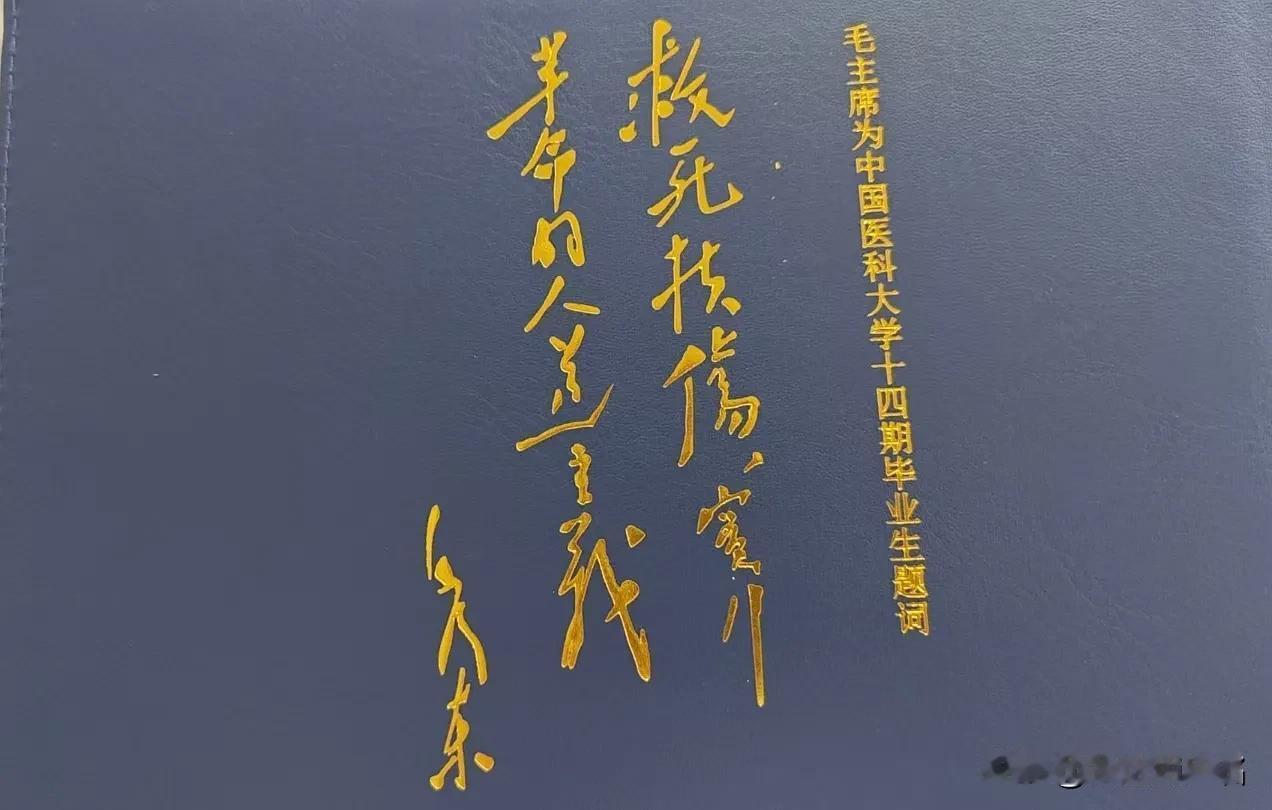 毛主席为中国医科大学十四期毕业生题词
救死扶傷、實行
革命的人道主義
毛泽东